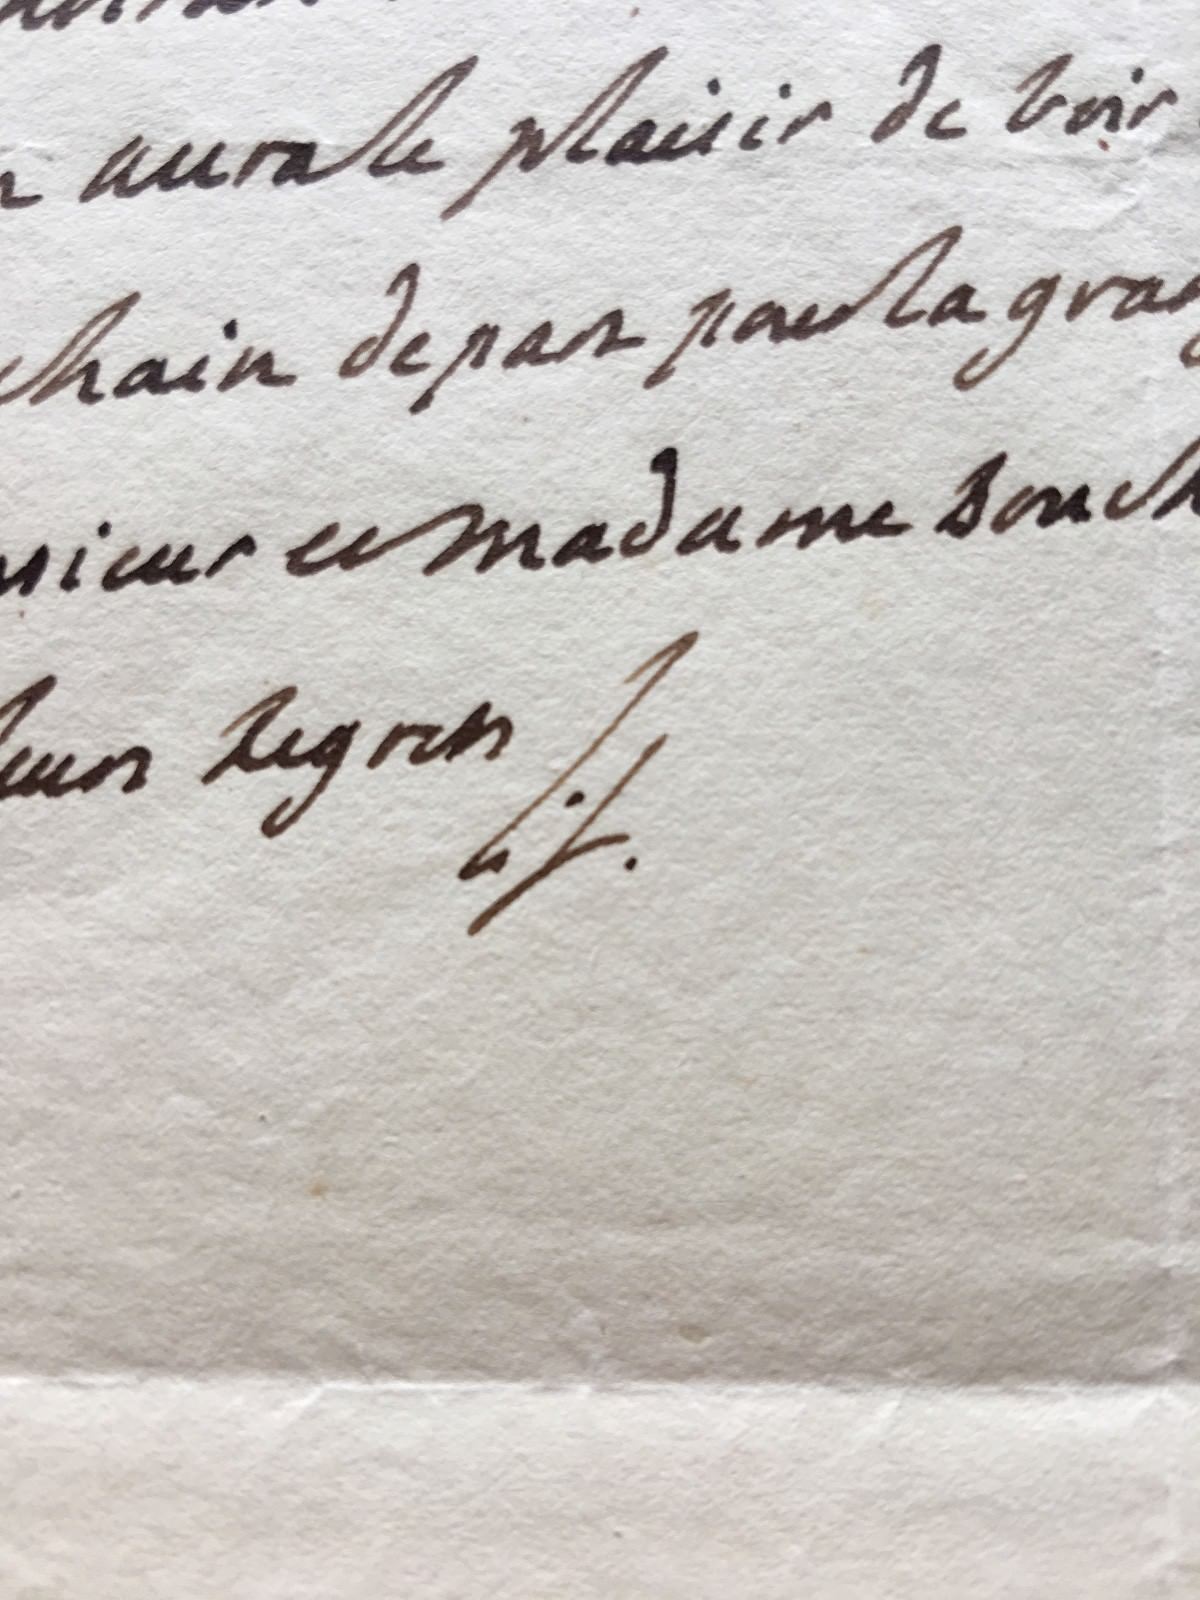 aura le plaisir de voir
chain depart pour la grang
nsieur et madame Bouch
leurs regrets